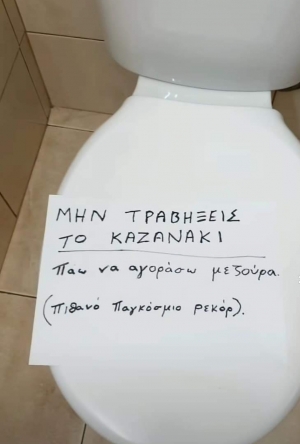 ΜΗΝ ΤΡΑΒΗΞΕΙΣ
ΤΟ ΚΑΖΑΝΑΚΙ
Παω να αγοράσω μεζούρα.
(πιθανό παγκόσμιο ρεκόρ).